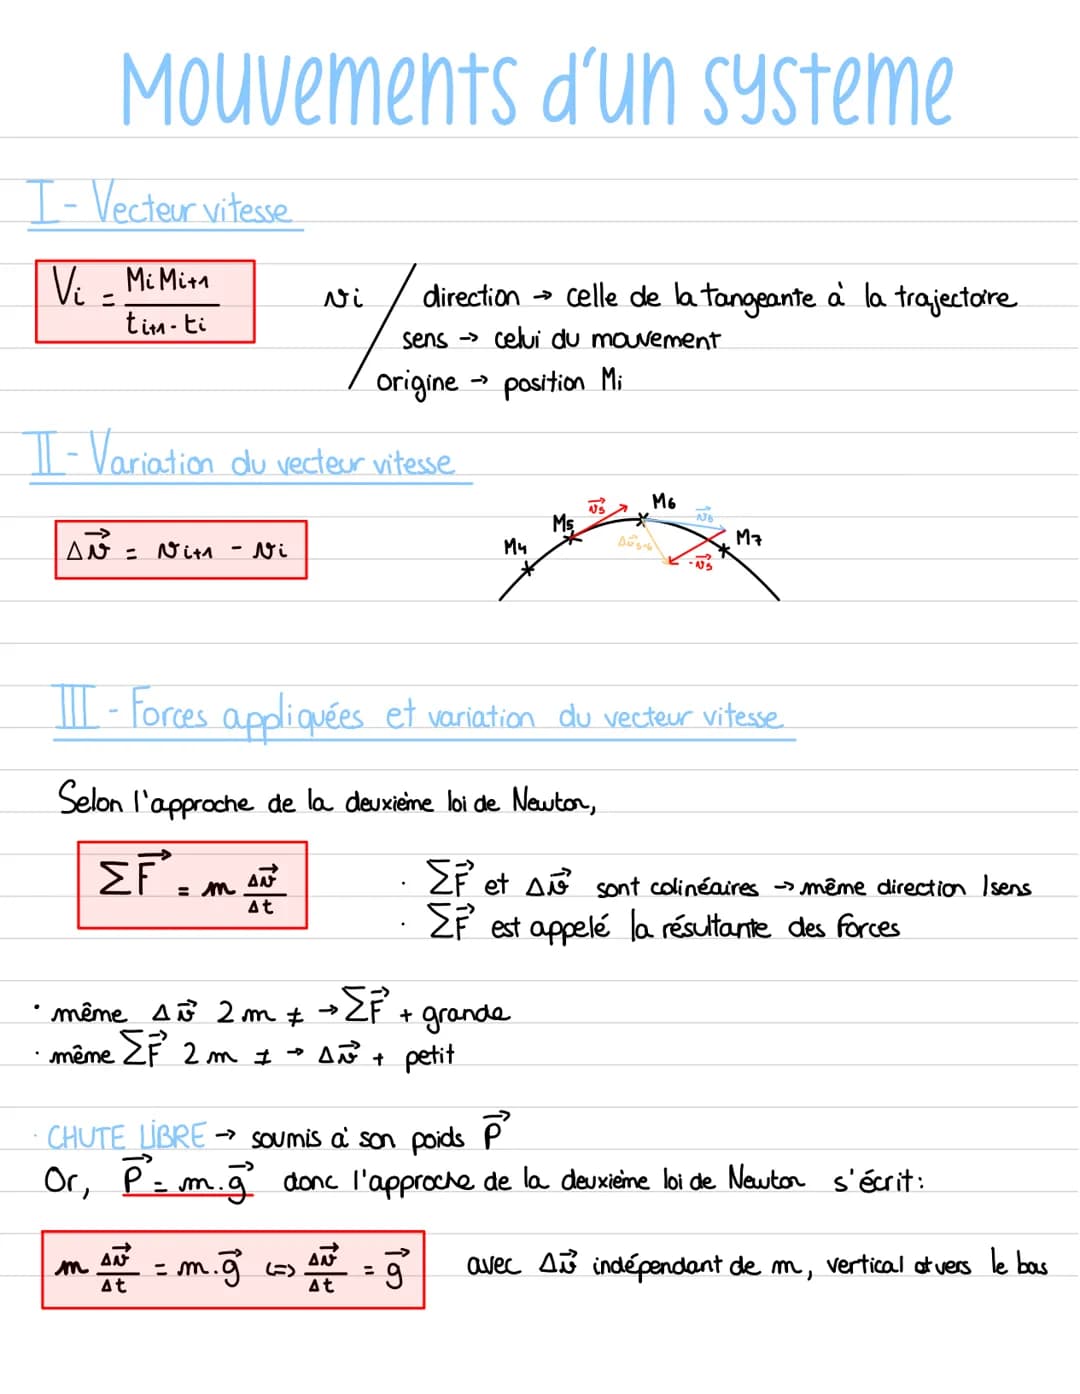 Mouvements d'un systeme
I - Vecteur vitesse
Vi = MiMi+1 / ti+1 - ti
vi / direction → celle de la tangeante à la trajectoire
sens → celui du mouvement
origine → position Mi
II - Variation du vecteur vitesse
Δv⃗ = vi+1 - vi
M4 M5 v⃗5 M6 v⃗6 M7 Δv⃗5-6 -v⃗5
III - Forces appliquées et variation du vecteur vitesse
Selon l'approche de la deuxième loi de Newton,
ΣF⃗ = m Δv⃗ / Δt
· ΣF⃗ et Δv⃗ sont colinéaires → même direction /sens
· ΣF⃗ est appelé la résultante des forces
· même Δv⃗ 2 m ≠ → ΣF⃗ + grande
· même ΣF⃗ 2 m ≠ → Δv⃗ + petit
· CHUTE LIBRE → soumis à son poids P⃗
Or, P⃗ = m.g⃗ donc l'approche de la deuxième loi de Newton s'écrit:
m Δv⃗ / Δt = m.g⃗ <=> Δv⃗ / Δt = g⃗
avec Δv⃗ indépendant de m, vertical et vers le bas